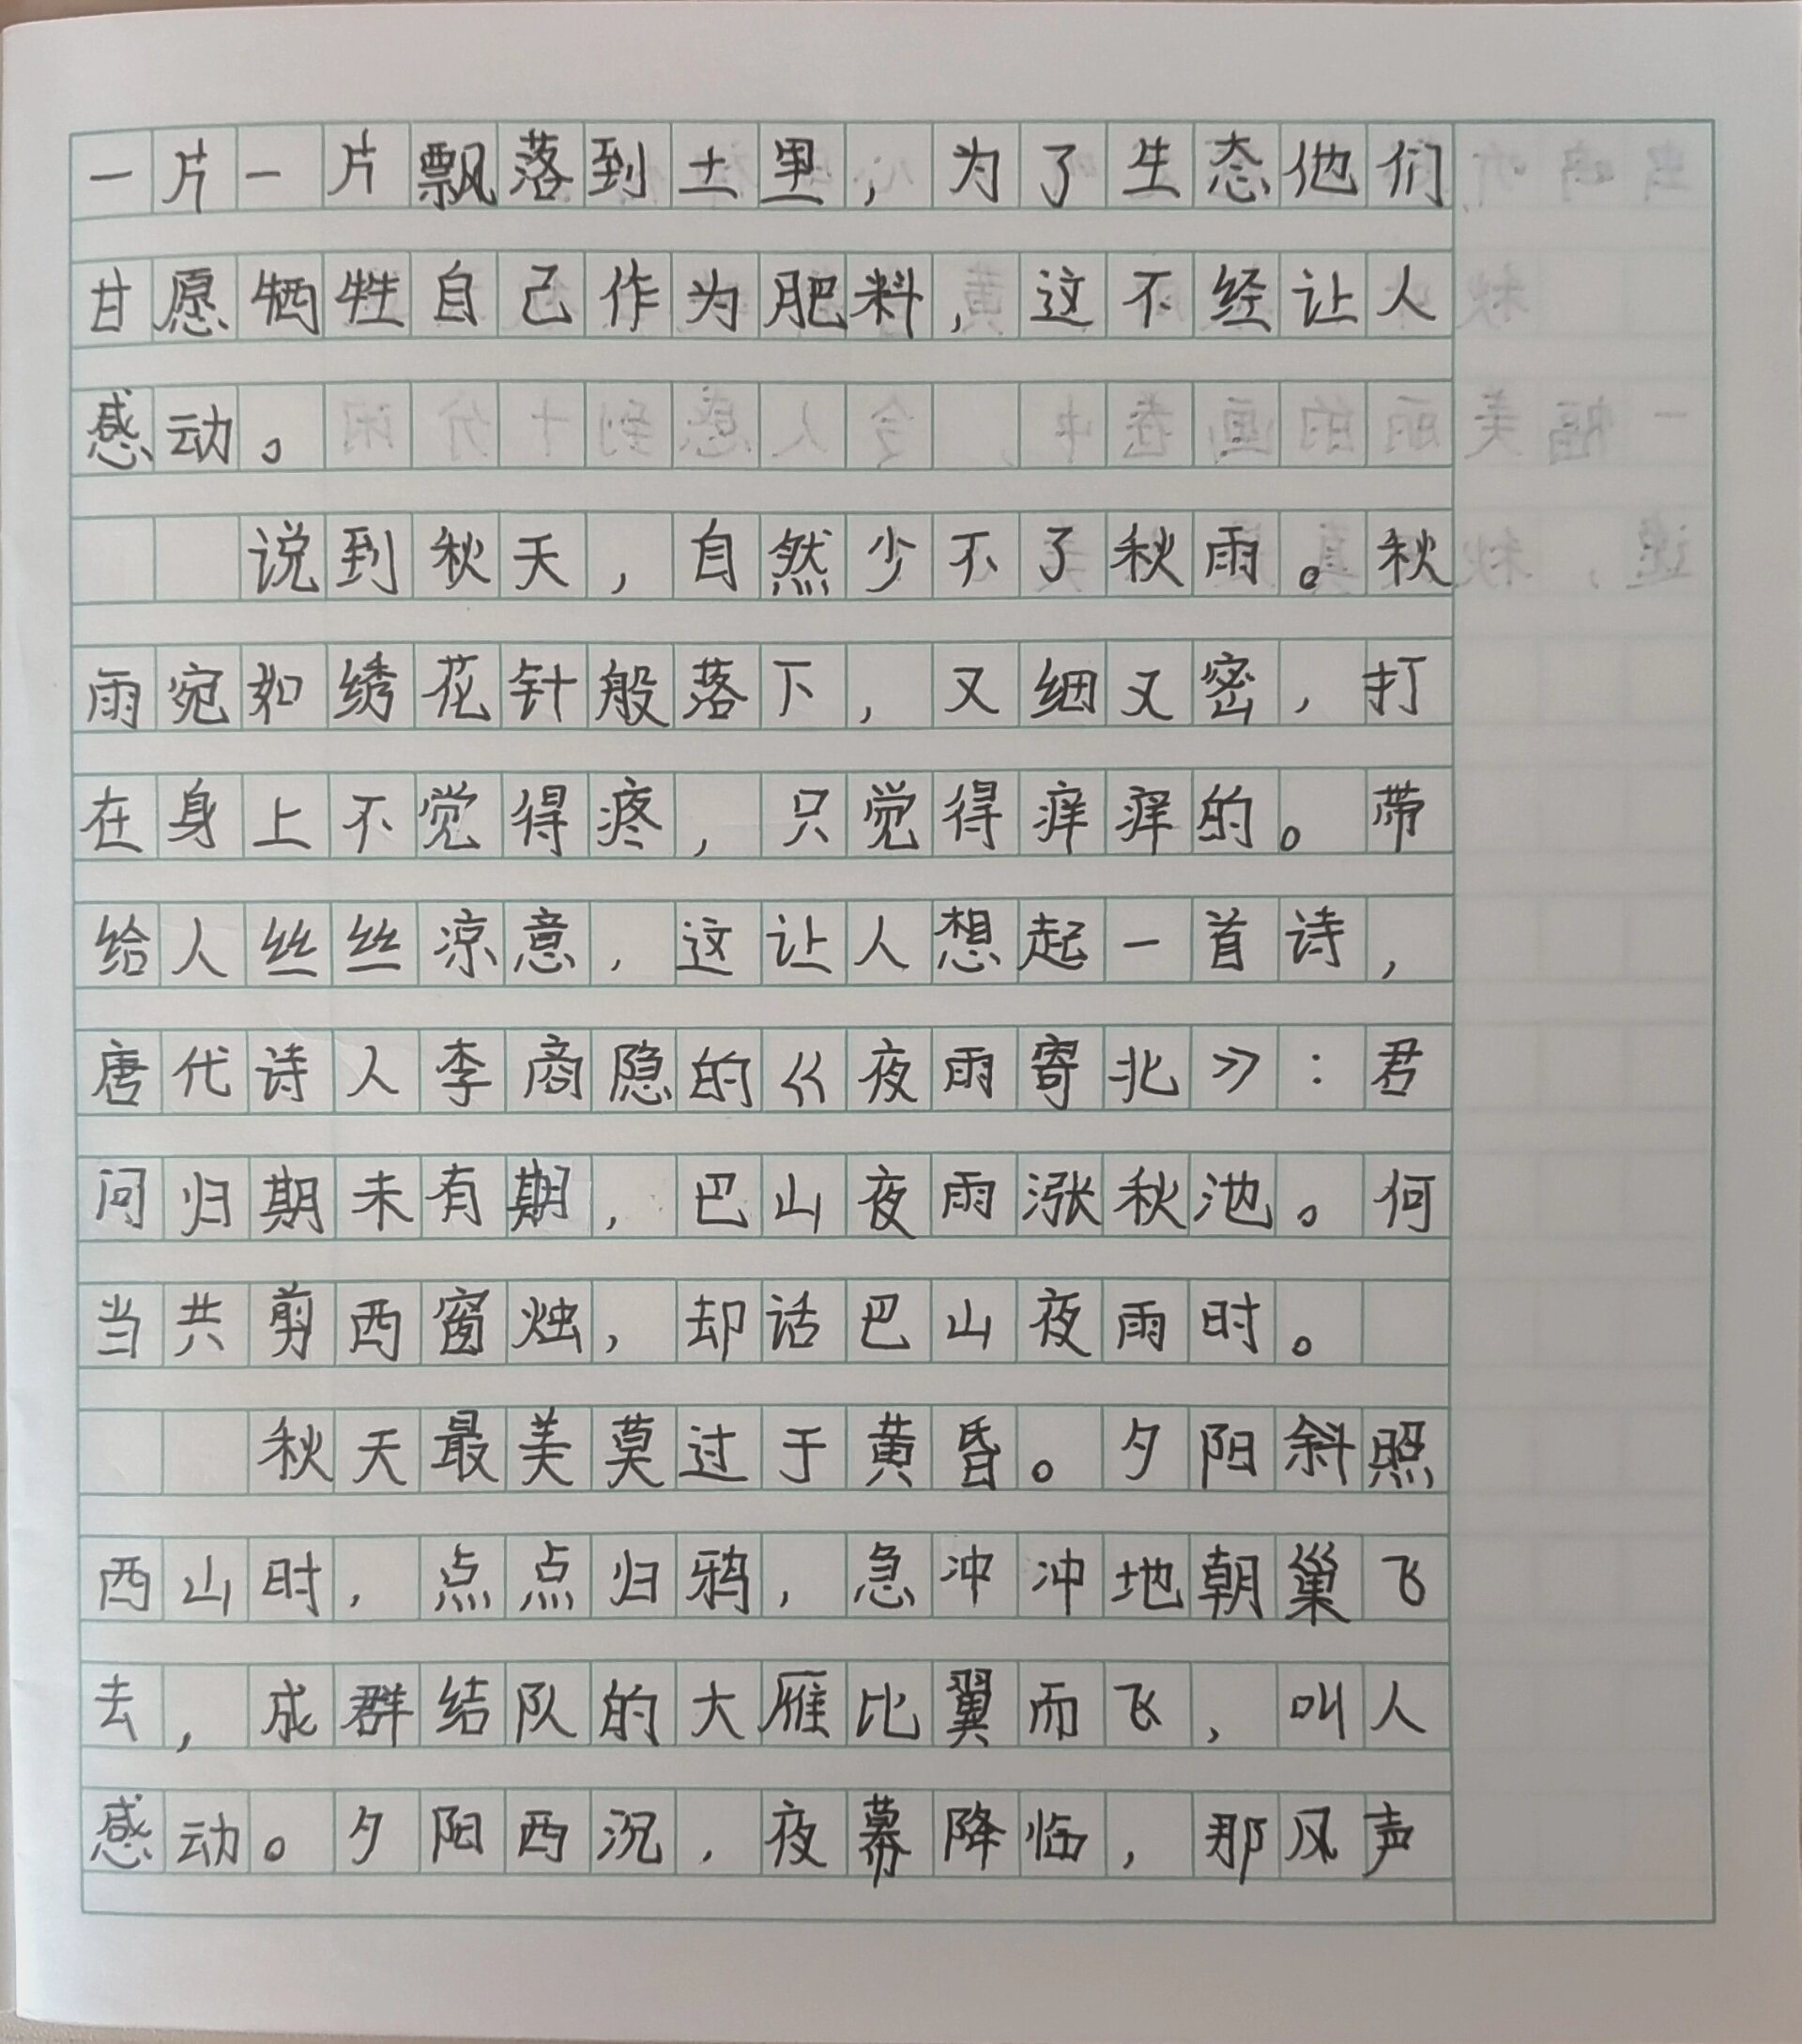 一片一片飘落到土里，为了生态他们
甘愿牺牲自己作为肥料，这不经让人
感动。
说到秋天，自然少不了秋雨。秋
雨宛如绣花针般落下，又细又密，打
在身上不觉得疼，只觉得痒痒的。带
给人丝丝凉意，这让人想起一首诗，
唐代诗人李商隐的《夜雨寄北》：君
问归期未有期，巴山夜雨涨秋池。何
当共剪西窗烛，却话巴山夜雨时。
秋天最美莫过于黄昏。夕阳斜照
西山时，点点归鸦，急冲冲地朝巢飞
去，成群结队的大雁比翼而飞，叫人
感动。夕阳西沉，夜幕降临，那风声